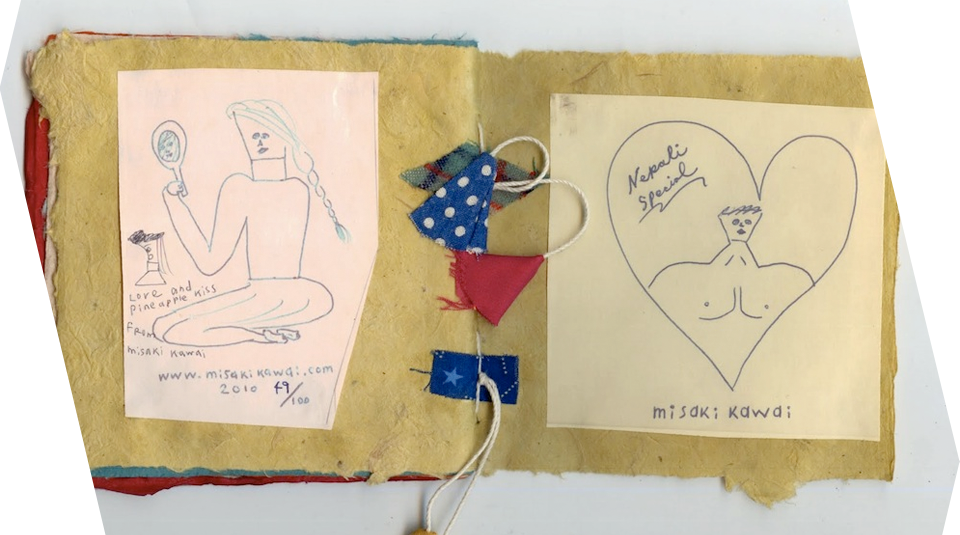 Love and
pineapple kiss
From
misaki kawai
www.misakikawai.com
2010 49/100
Nepali
Special
misaki kawai